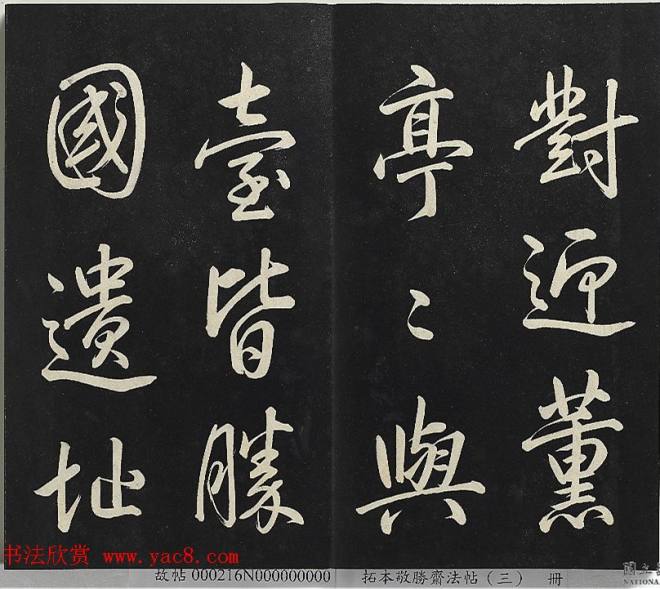 對迎薰
亭〻與
臺皆勝
國遺址
书法欣赏 www.yac8.com
故帖 000216N000000000
拓本敬勝齋法帖（三） 冊
國立
NATIONA